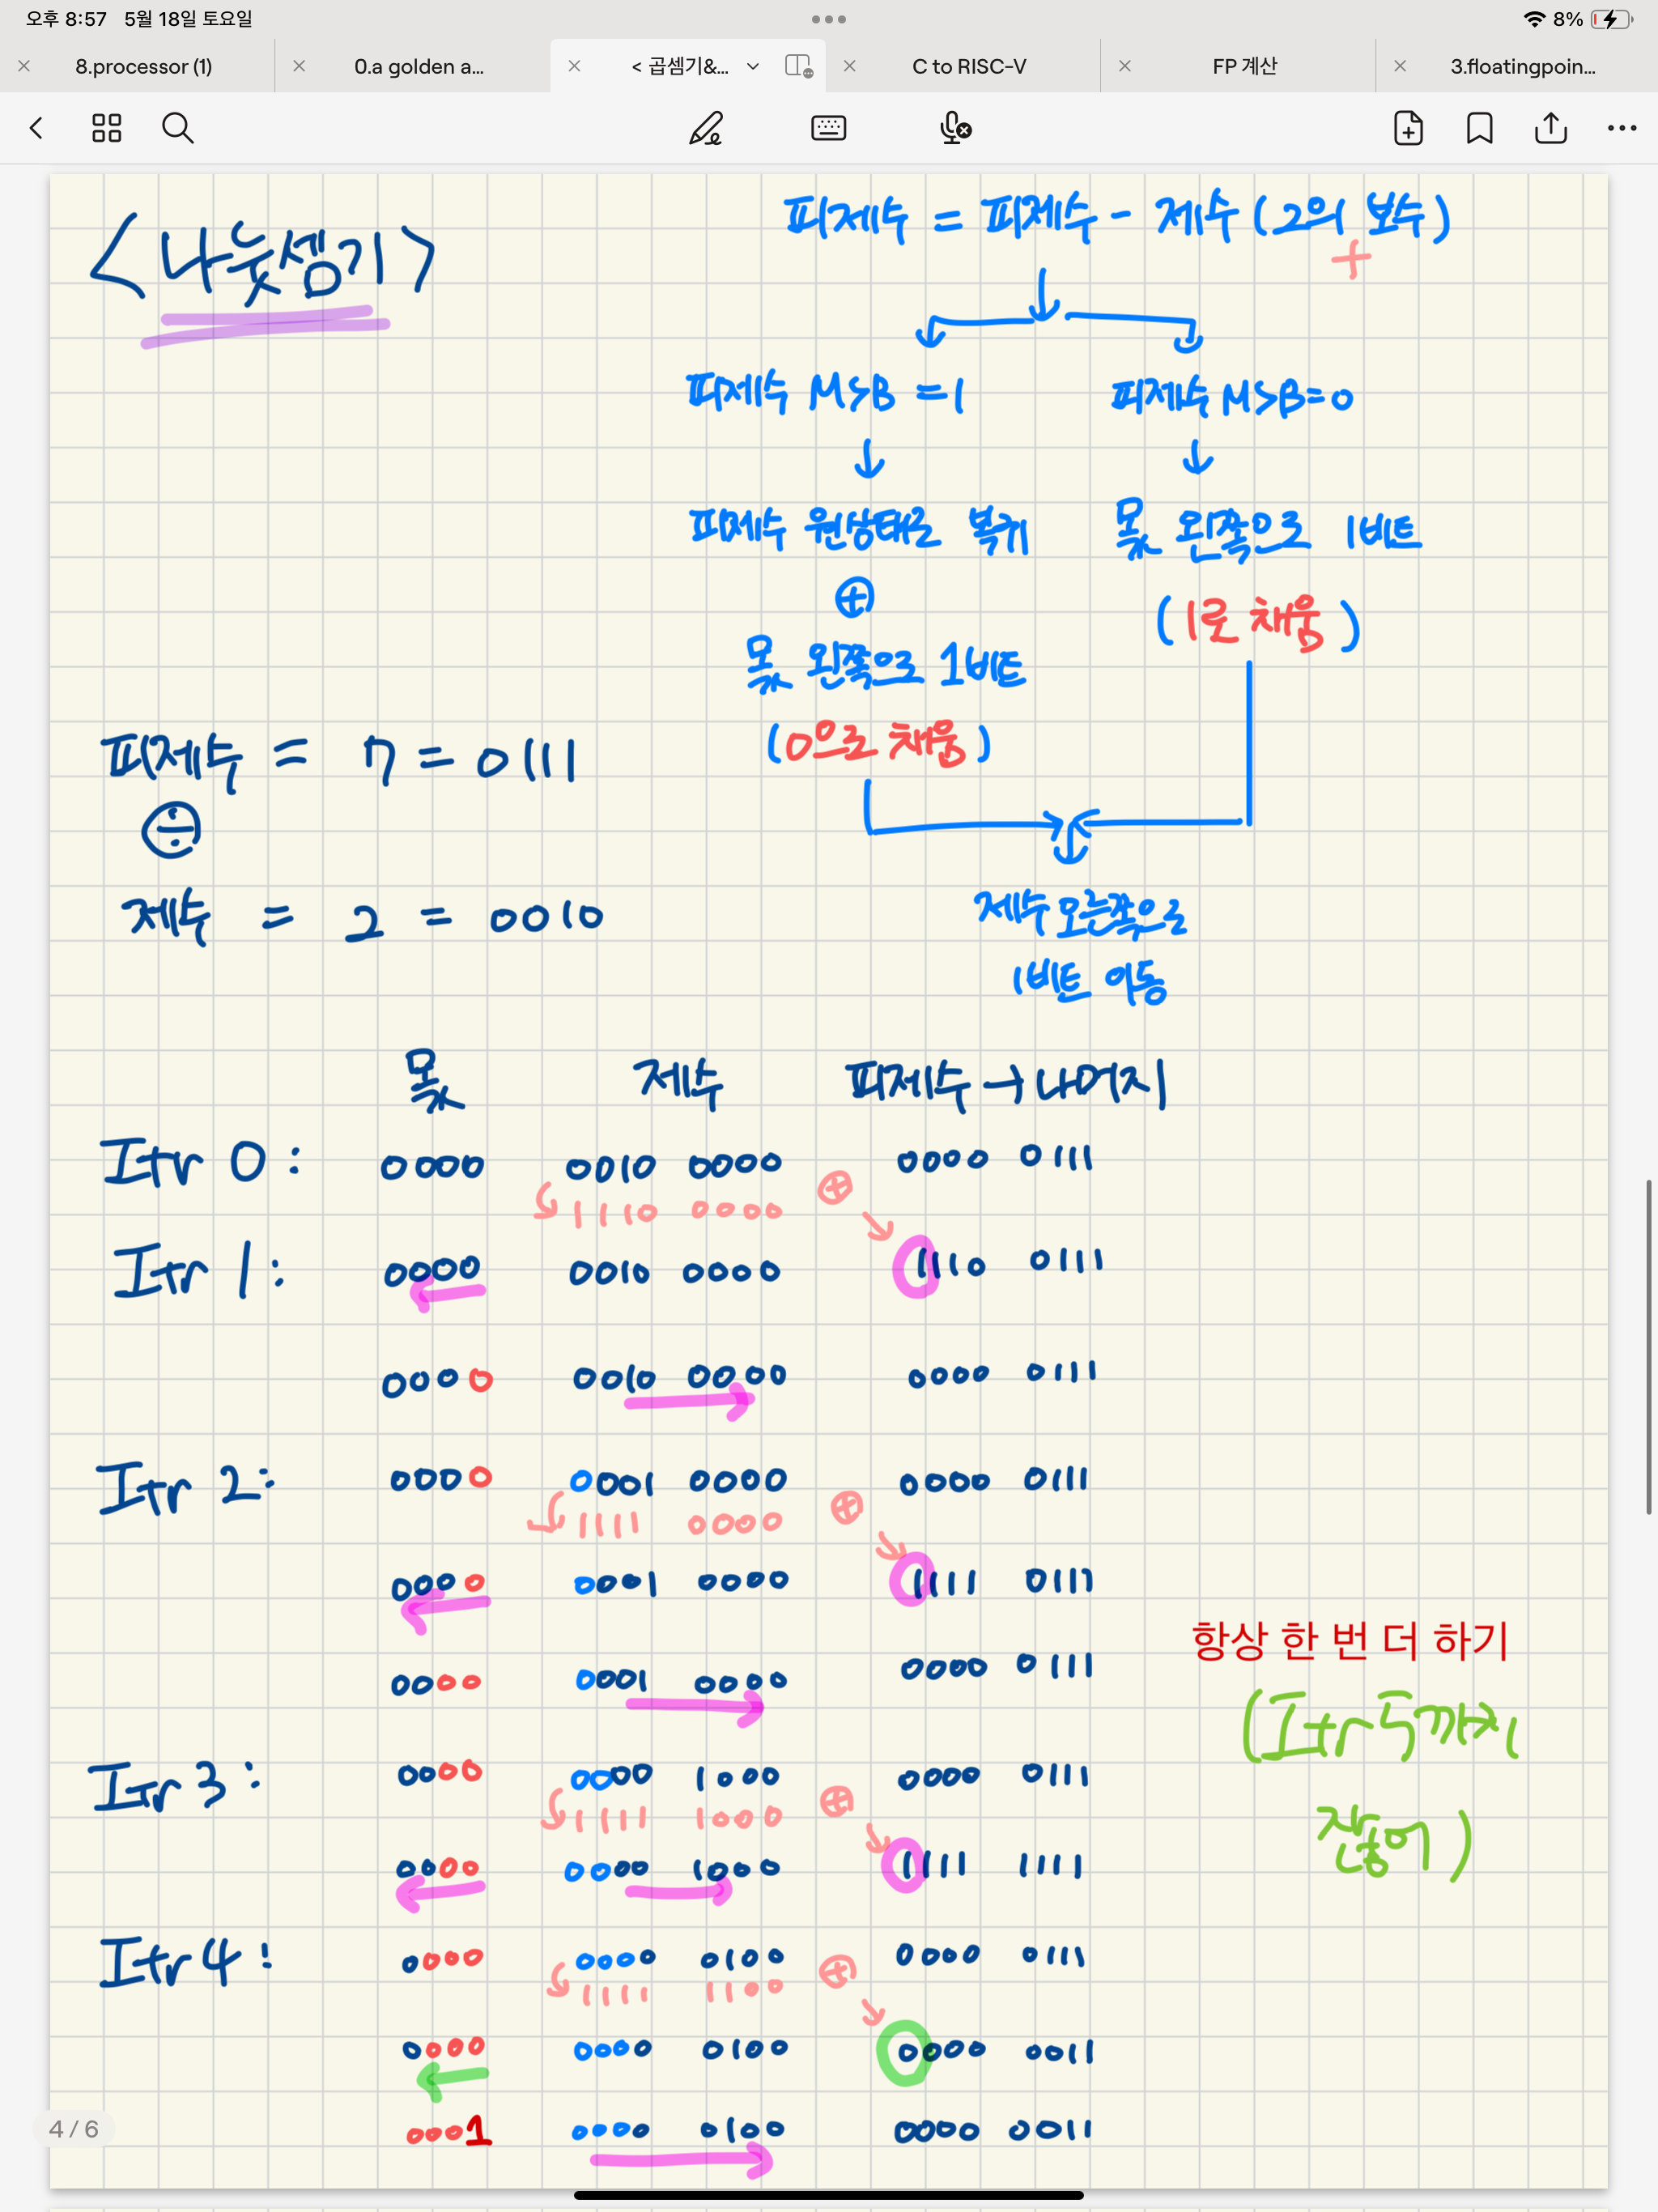 오후 8:57 5월 18일 토요일
8%
8.processor (1)
0.a golden a...
< 곱셈기&...
C to RISC-V
FP 계산
3.floatingpoin...
<나눗셈기>
피제수 = 피제수 - 제수 (2의 보수)
+
피제수 MSB = 1
피제수 MSB = 0
↓ ↓
피제수 원상태로 복귀
몫 왼쪽으로 1비트
⊕
(1로 채움)
몫 왼쪽으로 1비트
(0으로 채움)
피제수 = 7 = 0111
÷
제수 = 2 = 0010
제수 오른쪽으로
1비트 이동
몫 제수 피제수 → 나머지
Itr 0: 0000 0010 0000 0000 0111
1110 0000 ⊕
Itr 1: 0000 0010 0000 1110 0111
0000 0010 0000 0000 0111
Itr 2: 0000 0001 0000 0000 0111
1111 0000 ⊕
0000 0001 0000 1111 0111
항상 한 번 더 하기
0000 0001 0000 0000 0111
(Itr 5까지
Itr 3: 0000 0000 1000 0000 0111
1111 1000 ⊕
잖어)
0000 0000 1000 1111 1111
Itr 4: 0000 0000 0100 0000 0111
1111 1100 ⊕
0000 0000 0100 0000 0011
0001 0000 0100 0000 0011
4/6